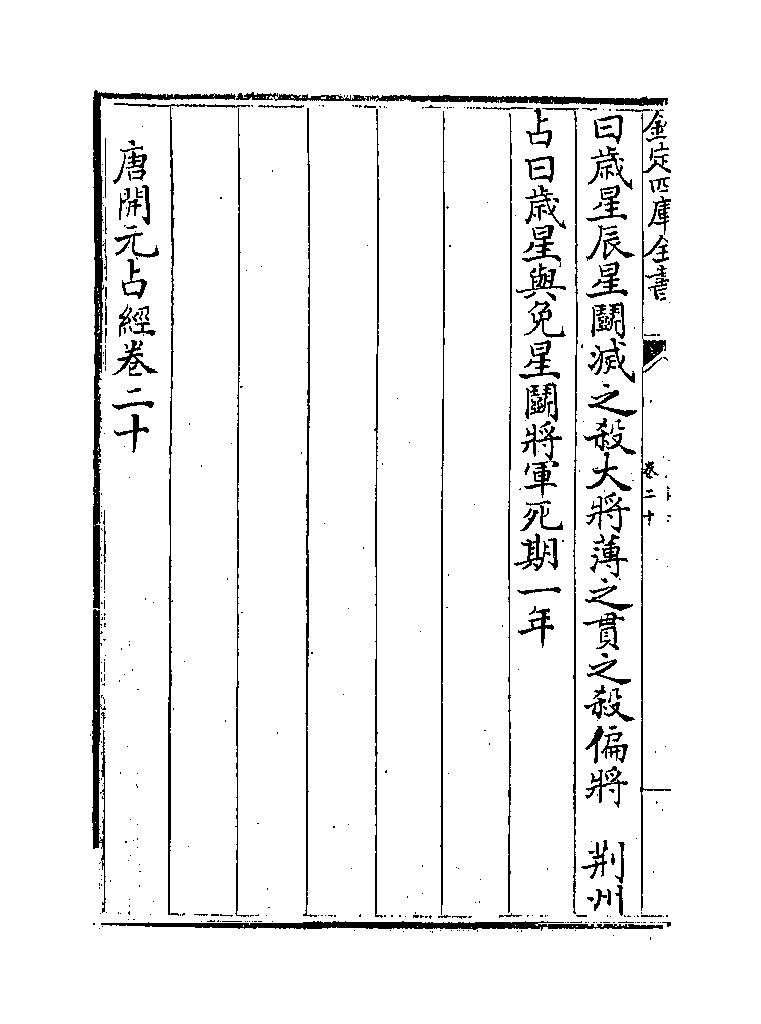 欽定四庫全書
卷二十
曰歲星辰星鬭滅之殺大將薄之貫之殺偏將　荆州
占曰歲星與免星鬭將軍死期一年
唐開元占經卷二十